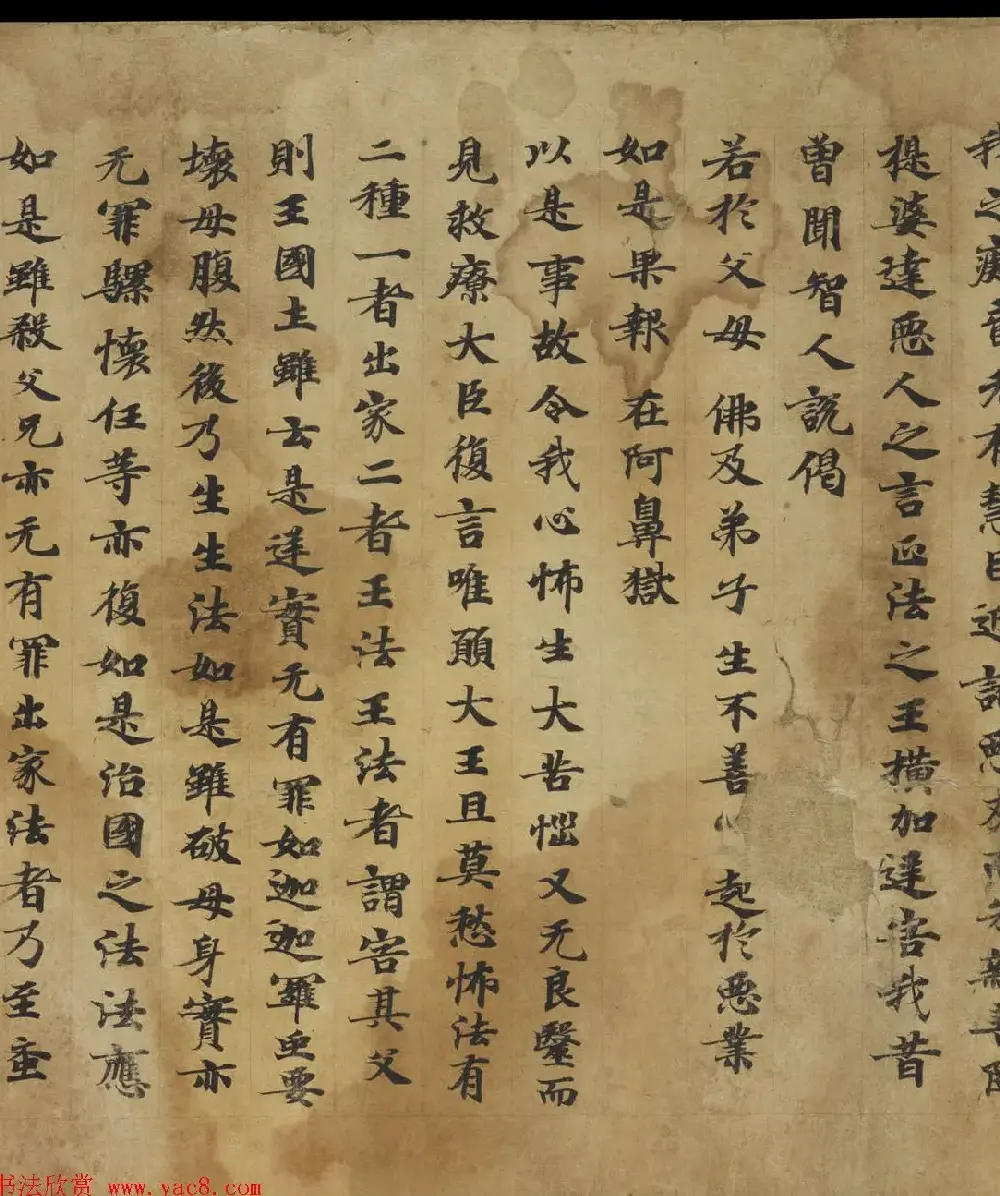 提婆達惡人之言正法之王橫加逆害我昔
曾聞智人說偈
若於父母 佛及弟子 生不善心 起於惡業
如是果報 在阿鼻獄
以是事故令我心怖生大苦惱又无良毉而
見救療大臣復言唯願大王且莫愁怖法有
二種一者出家二者王法王法者謂害其父
則王國土雖云是逆實无有罪如迦迦羅虫要
壞母腹然後乃生生法如是雖破母身實亦
无罪騾懷任等亦復如是治國之法法應
如是雖殺父兄亦无有罪出家法者乃至蚉
书法欣赏 www.yac8.com